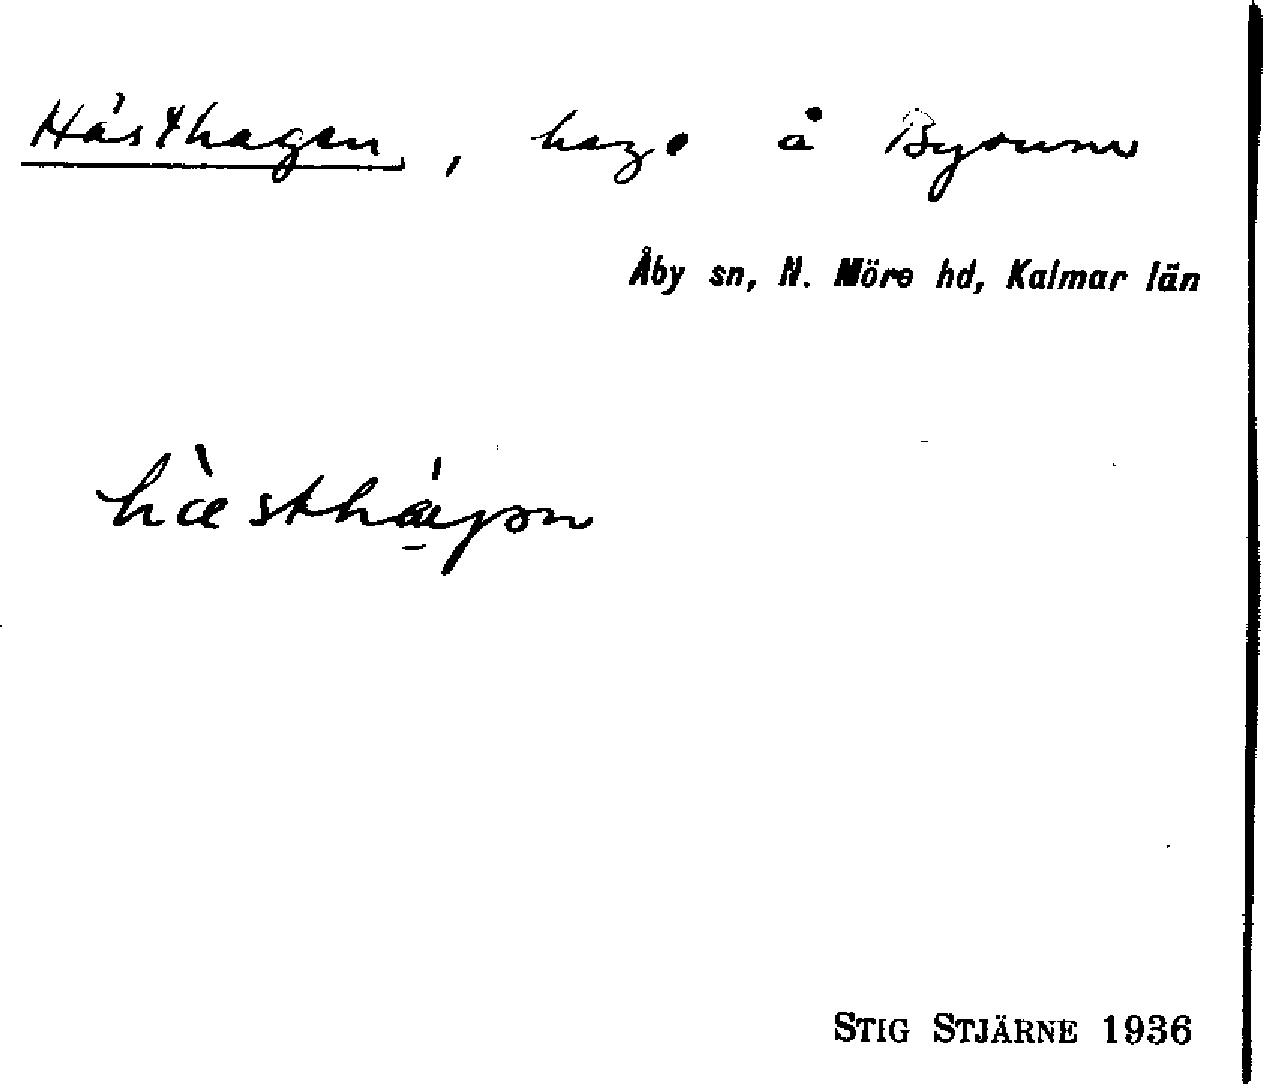 Hästhagen, hage å Byrum
Åby sn, N. Möre hd, Kalmar län
hæ̀sthá̱γən
STIG STJÄRNE 1936